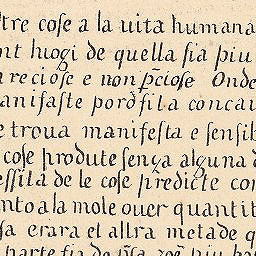 tre cose a la uita humana
nt luogi de quella sia piu
reciose e non p̃ciose Onde
anifaste por d̃sila concau
e troua manifesta e sensib
cose produte senza alguna d
essita de le cose p̃redicte con
nto a la mole ouer quantit
sa erara et altra meta de q
parte sia de